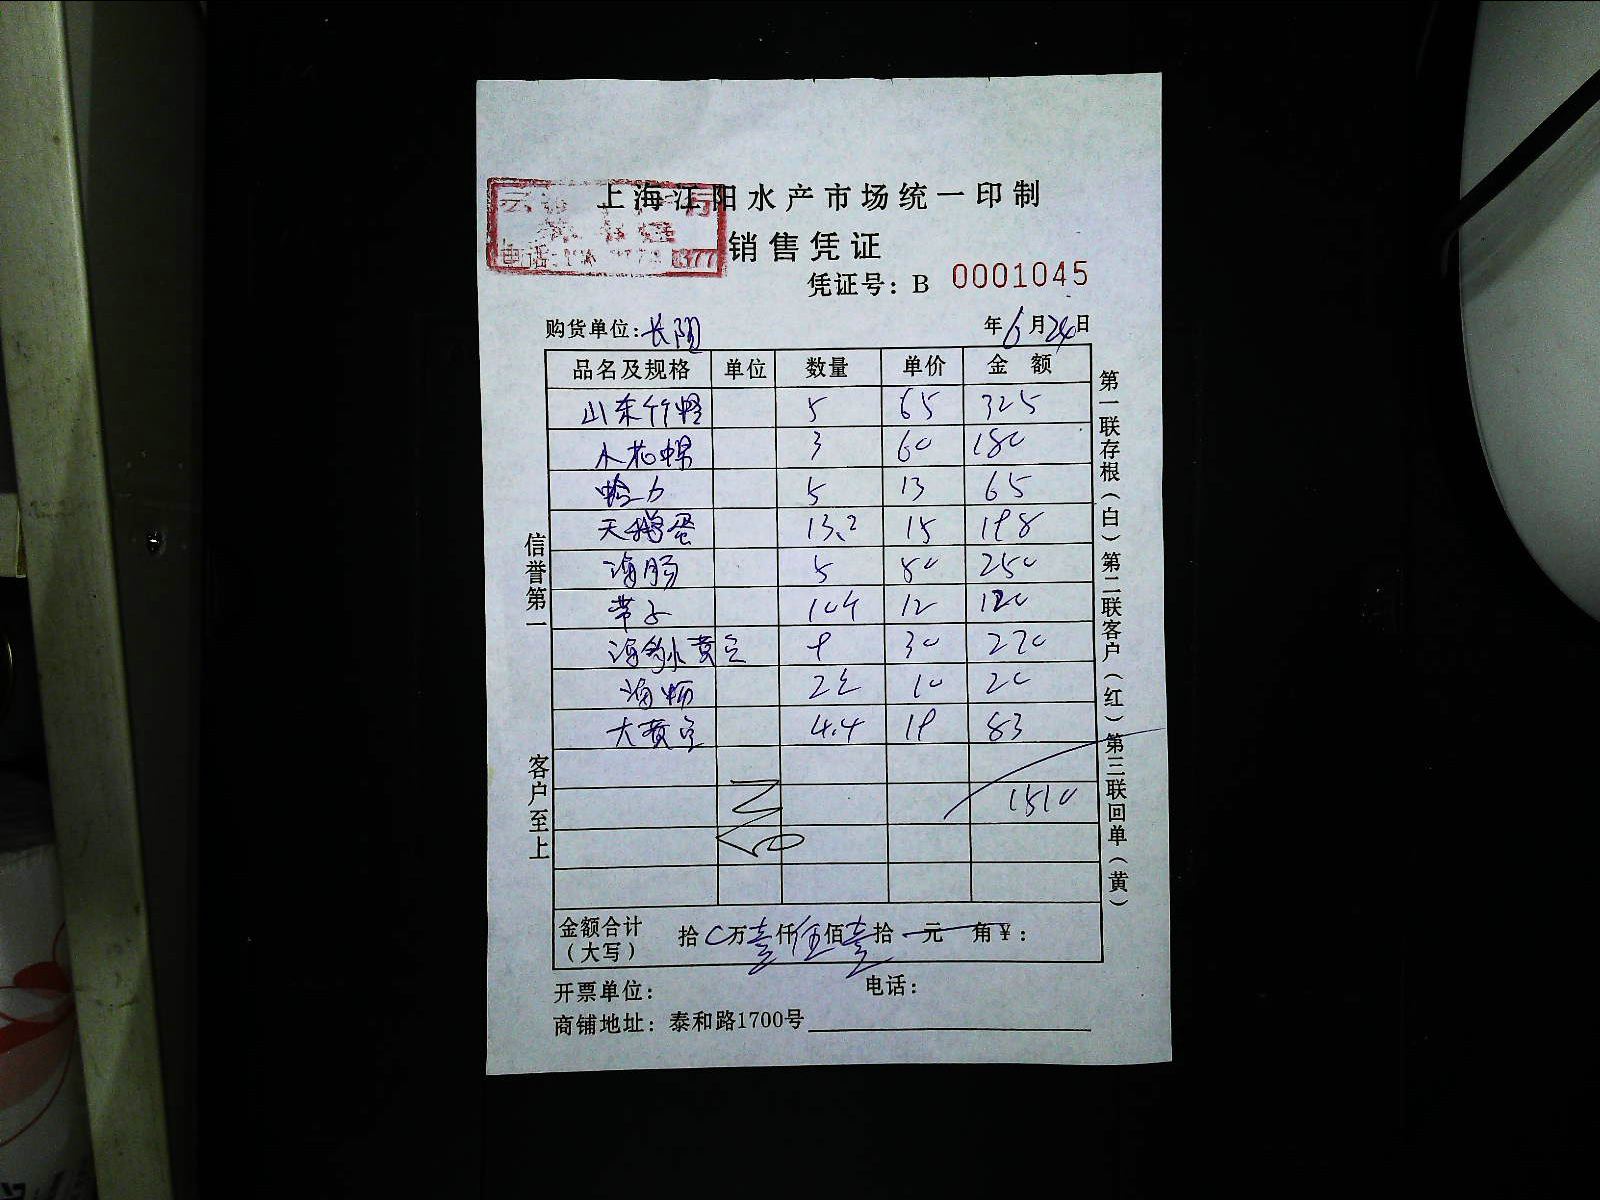 上海江阳水产市场统一印制
销售凭证
电话: 377
凭证号：B 0001045
购货单位：长阳 年6月24日
品名及规格 单位 数量 单价 金 额
山东竹蛏 5 65 325
木花 3 60 180
蛤力 5 13 65
天鹅蛋 13.2 15 198
海肠 5 80 250
带子 10个 12 120
海 黄 9 30 270
海 2 10 20
大黄 4.4 19 83
1510
金额合计（大写） 拾 0万壹仟伍佰壹拾 元 角￥：
开票单位： 电话：
商铺地址：泰和路1700号
信誉第一 客户至上
第一联存根（白）第二联客户（红）第三联回单（黄）